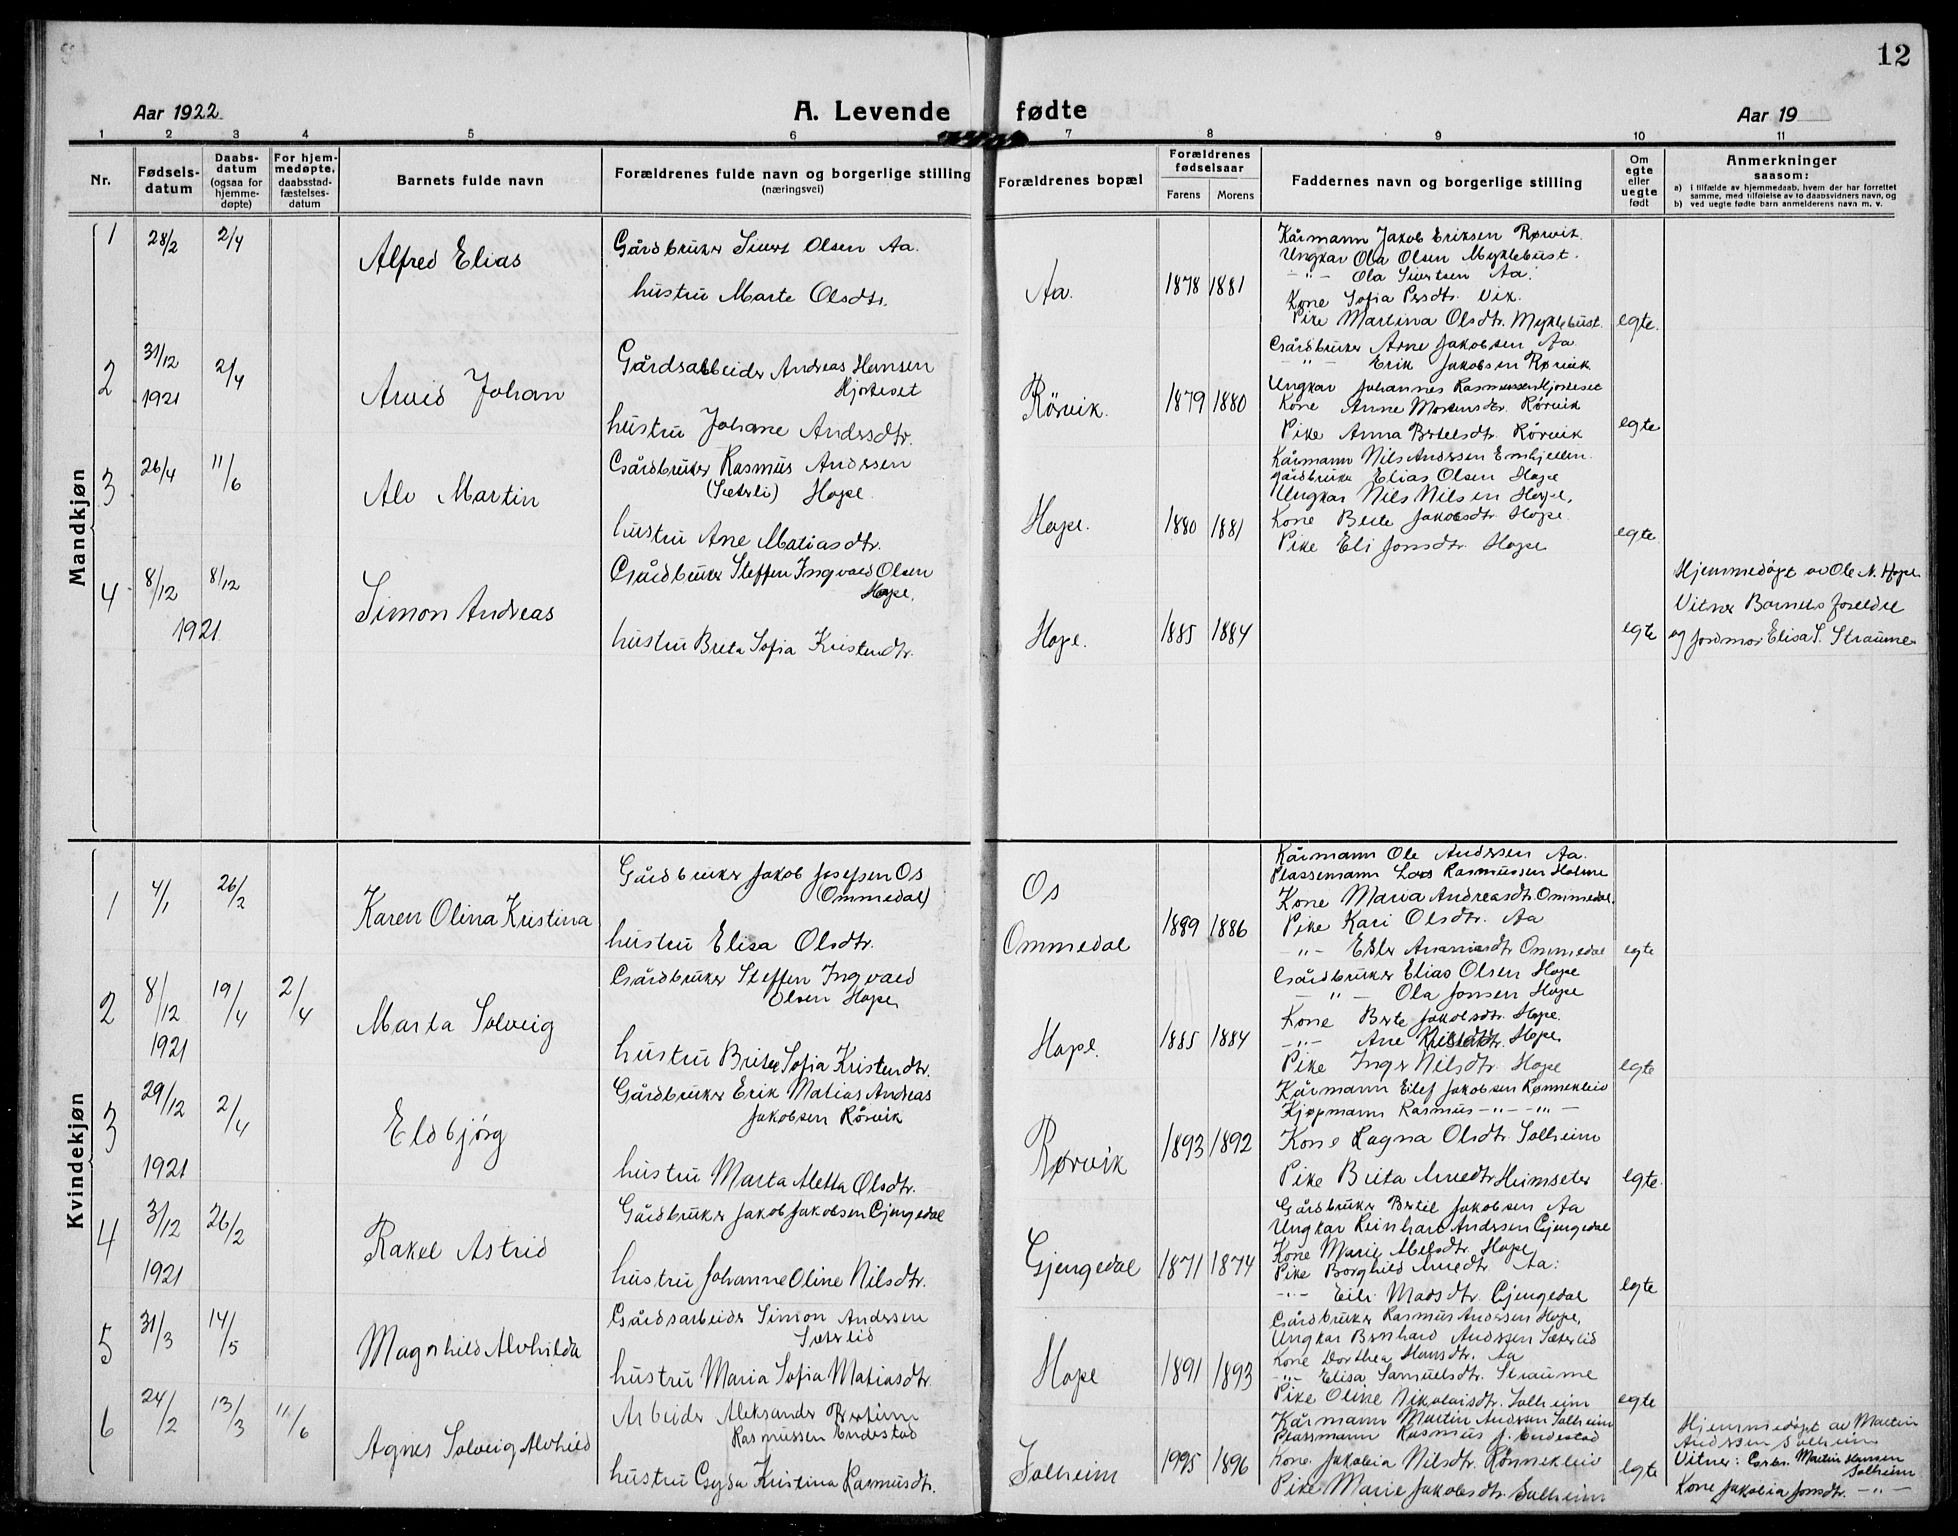 12
Aar 1922
A. Levende fødte
Aar 19
1 2 3 4 5 6 7 8 9 10 11
Nr.
Fødsels-
datum
Daabs-
datum
(ogsaa for
hjemme-
døpte)
For hjem-
medøpte,
daabsstad-
fæstelses-
datum
Barnets fulde navn
Forældrenes fulde navn og borgerlige stilling
(næringsvei)
Forældrenes bopæl
Forældrenes
fødselsaar
Farens Morens
Faddernes navn og borgerlige stilling
Om
egte
eller
uegte
født
Anmerkninger
saasom:
a) i tilfælde av hjemmedaab, hvem der har forrettet
samme, med tilføielse av to daabsvidners navn, og
b) ved uegte fødte barn anmelderens navn m. v.
Mandkjøn
1 28/2 2/4
Alfred Elias
Gårdbruker Sivert Olsen Aa.
hustru Marte Olsdtr.
Aa. 1878 1881
Kårmann Jakob Eriksen Rørvik
Ungkar Ola Olsen Myklebust.
-"- Ola Sivertsen Aa.
Kone Sofia Persdtr. Vik.
Pike Martina Olsdtr. Myklebust.
egte.
2 31/12 2/4
1921
Arvid Johan
Gårdsarbeider Andreas Hansen
Hjorteset
hustru Johane Andersdtr.
Rørvik. 1879 1880
Gårdbruker Arne Jakobsen Aa
-"- Erik Jakobsen Rørvik
Ungkar Johannes Rasmussen Hjorteset
Kone Anne Mortensdtr. Rørvik
Pike Anna Bertelsdtr. Rørvik
egte
3 26/4 11/6
Alv Martin
Gårdbruker Rasmus Andersen
(Sæterli) Hope.
hustru Ane Matiasdtr.
Hope. 1880 1881
Kårmann Nils Andersen Emhjellen.
Gårdbruker Elias Olsen Hope
Ungkar Nils Nilsen Hope,
Kone Berte Jakobsdtr. Hope.
Pike Eli Jonsdtr. Hope
egte
4 8/12 8/12
1921
Simon Andreas
Gårdbruker Steffen Ingvald Olsen
Hope,
hustru Brita Sofia Kristendtr.
Hope. 1885 1884
egte
Hjemmedøpt av Ole N. Hope
Vitner Barnets foreldre
og jordmor Elisa S. Straume
Kvindekjøn
1 4/1 26/2
Karen Olina Kristina
Gårdbruker Jakob Josefsen Os
(Ommedal)
hustru Elisa Olsdtr.
Os
Ommedal
1889 1886
Kårmann Ole Andersen Aa.
Plassemann Lars Rasmussen Holme
Kone Maria Andreasdtr Ommedal.
Pike Kari Olsdtr. Aa
-"- Ester Ananiasdtr Ommedal
egte
2 8/12 19/4 2/4
1921
Marta Solveig
Gårdbruker Steffen Ingvald
Olsen Hope,
hustru Brita Sofia Kristendtr.
Hope. 1885 1884
Gårdbruker Elias Olsen Hope
-"- Ola Jonsen Hope
Kone Berte Jakobsdtr. Hope.
-"- Ane Hope
Pike Inger Nilsdtr. Hope
egte
3 29/12 2/4
1921
Eldbjørg
Gårdbruker Erik Matias Andreas
Jakobsen Rørvik
hustru Marta Aletta Olsdtr.
Rørvik 1893 1892
Kårmann Eilef Jakobsen Rønnekleiv
Kjøpmann Rasmus -"- -"-
Kone Ragna Olsdtr. Solheim
Pike Brita Arnedtr Heimseter
egte.
4 3/12 26/2
1921
Rakel Astrid
Gårdbruker Jakob Jakobsen Gjengedal
hustru Johanne Oline Nilsdtr.
Gjengedal 1871 1874
Gårdbruker Bertil Jakobsen Aa
Ungkar Reinhart Andersen Gjengedal
Kone Marie Abelsdtr. Hope
Pike Borghild Arnedtr Aa:
-"- Eili Madsdtr. Gjengedal
egte
5 31/3 14/5
Magnhild Alvhilda
Gårdsarbeider Simon Andersen
Sæterlid
hustru Maria Sofia Matiasdtr.
Hope 1891 1893
Gårdbruker Rasmus Andersen Hope,
Ungkar Bernhard Andersen Sæterlid
Kone Dorthea Hansdtr. Aa
-"- Elisa Samuelsdtr. Straume
Pike Oline Nikolaisdtr. Solheim
egte
6 24/2 13/3 11/6
Agnes Solveig Alvhild
Arbeider Aleksander Bertinus
Rasmussen Endestad
hustru Gyda Kristina Rasmusdtr.
Solheim 1995 1896
Kårmann Martin Andersen Solheim
Plassmann Rasmus J. Endestad
Kone Jakobia Nilsdtr. Rønnekleiv
Pike Marie Jakobsdtr. Solheim
egte
Hjemmedøpt av Martin
Andersen Solheim
Vitner: Gårbr. Martin Hansen
Solheim
Kone Jakobia Jonsdtr. -"-